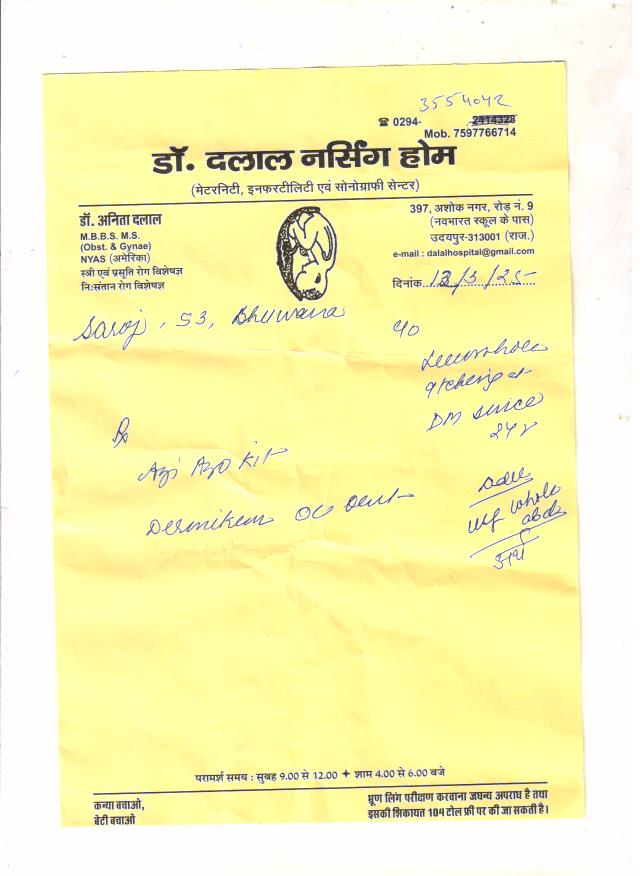 3554042
☎ 0294- 2414328
Mob. 7597766714
डॉ. दलाल नर्सिंग होम
(मेटरनिटी, इनफरटीलिटी एवं सोनोग्राफी सेन्टर)
डॉ. अनिता दलाल
M.B.B.S. M.S.
(Obst. & Gynae)
NYAS (अमेरिका)
स्त्री एवं प्रसूति रोग विशेषज्ञ
नि:संतान रोग विशेषज्ञ
397, अशोक नगर, रोड़ नं. 9
(नवभारत स्कूल के पास)
उदयपुर-313001 (राज.)
e-mail : dalalhospital@gmail.com
दिनांक 13/3/25
Saroj, 53, Bhuwana
c/o
Leucorrhoea
itching
DM since
2yr
Rx
Azi Azo Kit
Dermikem OC Oint
Adv
usg whole
abd
परामर्श समय : सुबह 9.00 से 12.00 ✦ शाम 4.00 से 6.00 बजे
कन्या बचाओ,
बेटी बचाओ
भ्रूण लिंग परीक्षण करवाना जघन्य अपराध है तथा
इसकी शिकायत 104 टोल फ्री पर की जा सकती है।